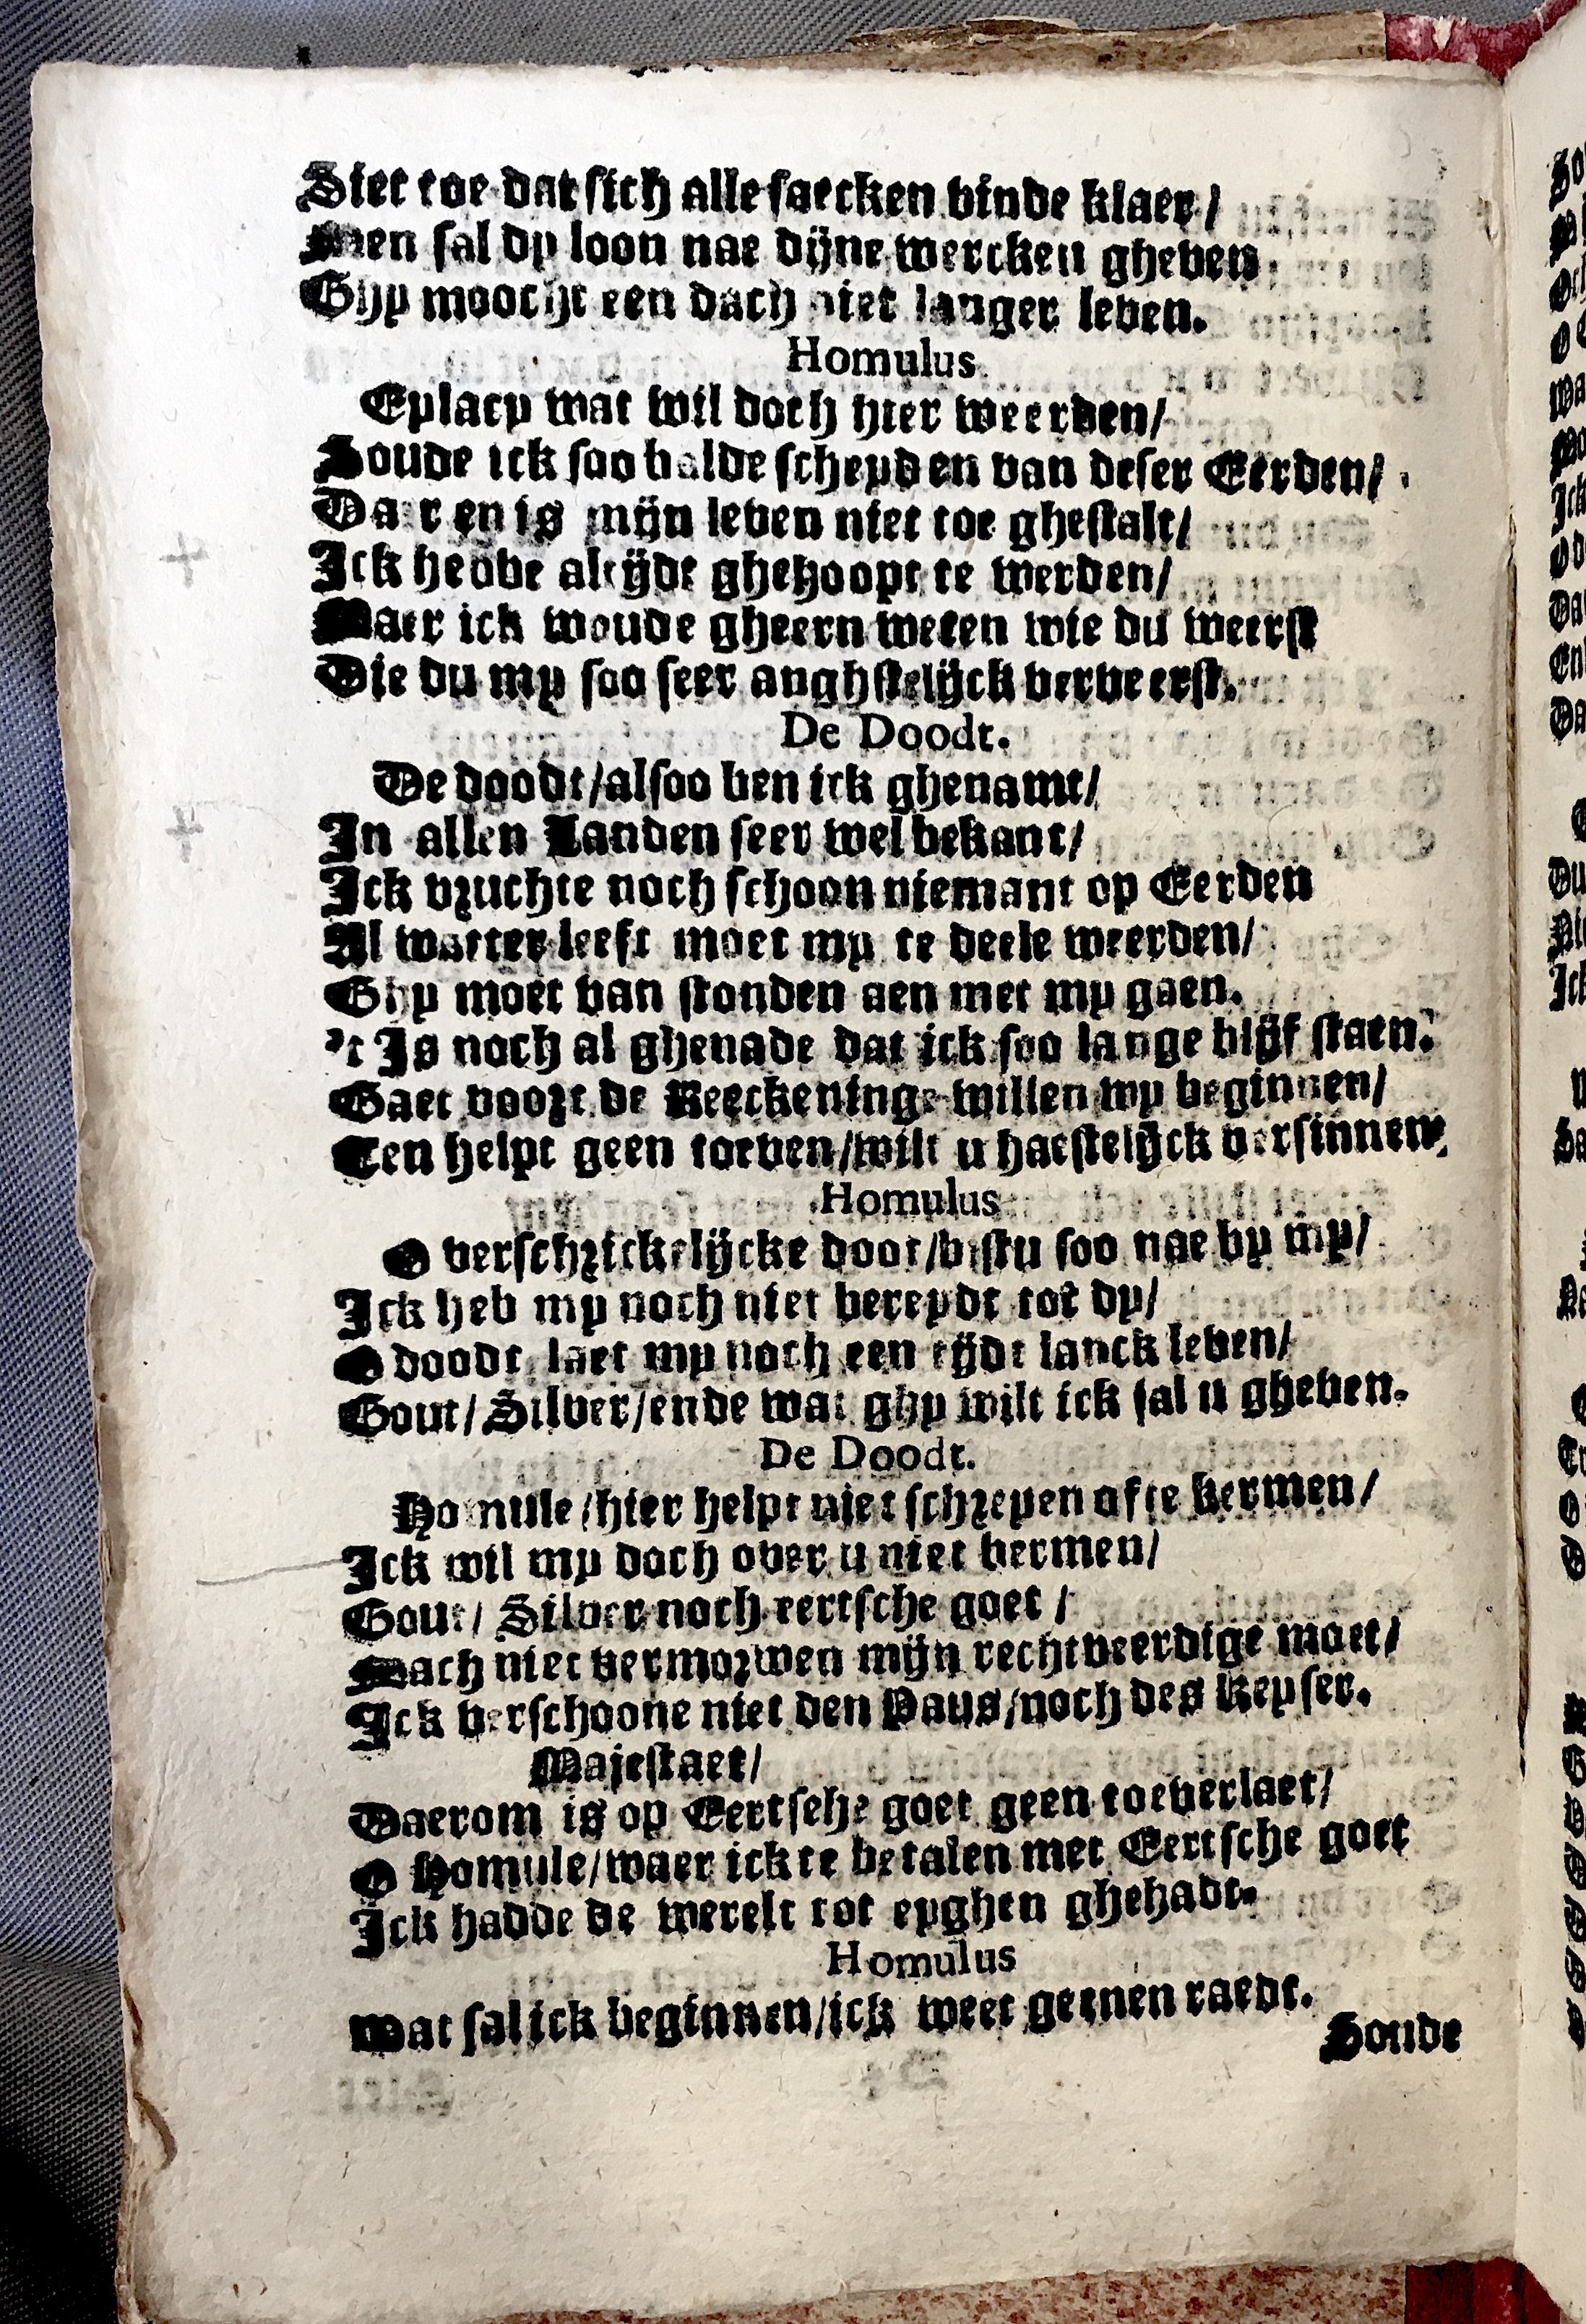 Siet toe dat sich alle saecken vinde klaer /
Men sal dy loon nae dijne wercken gheven
Ghy moocht een dach niet langer leven.
Homulus
Eylacy wat wil doch hier weerden /
Soude ick soo balde scheyden van deser Eerden /
Daer en is mijn leven niet toe ghestalt /
Ick hebbe altijdt ghehoopt te werden /
Maer ick woude gheern weten wie du weerst
Die du my soo seer anghstelijck verveerst.
De Doodt.
De doodt / alsoo ben ick ghenamt /
In allen Landen seer wel bekant /
Ick vruchte noch schoon niemant op Eerden
Al watter leeft moet my te deele weerden /
Ghy moet van stonden aen met my gaen.
't Is noch al ghenade dat ick soo lange blijf staen.
Gaet voort de Reeckeninge willen wy beginnen /
Ten helpt geen toeven / wilt u haestelijck versinnen,
Homulus
O verschrickelijcke doot / bistu soo nae by my /
Ick heb my noch niet bereydt tot dy /
O doodt laet my noch een tijdt lanck leven /
Gout / Silver / ende wat ghy wilt ick sal u gheven.
De Doodt.
Homule / hier helpt niet schreyen ofte kermen /
Ick wil my doch over u niet bermen /
Gout / Silver noch eertsche goet /
Mach niet vermorwen mijn rechtveerdige moet /
Ick verschoone niet den Paus / noch des Keyser.
Majestaet /
Daerom is op Eertsche goet geen toeverlaet /
O Homule / waer ick te betalen met Eertsche goet
Ick hadde de werelt tot eyghen ghehadt.
Homulus
Wat sal ick beginnen / ick weet geenen raedt.
Soude